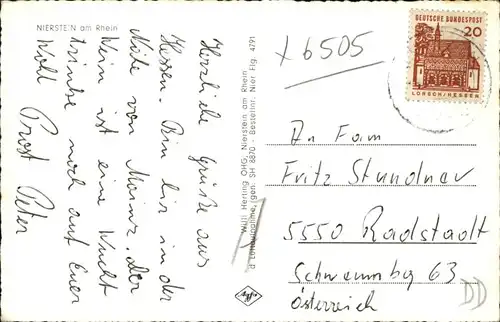 NIERSTEIN am Rhein
Herzliche Grüße aus
Hessen. Bin hir in der
Nähe von Mainz. Der
Wein ist eine Wucht
trinke noch auf Euer
Wohl
Prost Peter
Willi Herting OHG, Nierstein am Rhein
gen: SH 8870 - Bestellnr. Nier Flg. 4791
x 6505
DEUTSCHE BUNDESPOST
20
LORSCH/HESSEN
An Fam
Fritz Standner
5550 Radstadt
Schwemmbg 63
Österreich